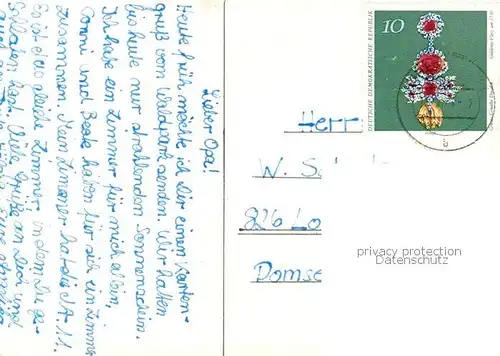 Lieber Opa!
Heute früh möchte ich Dir einen Karten-
gruß vom Waldpark senden. Wir hatten
bis heute nur strahlenden Sonnenschein.
Ich habe ein Zimmer für mich allein,
Conni und Beate haben für sich ein Zimmer
zusammen. Mein Zimmer hat die Nr. 11.
Es ist etwa gleiche Zimmer in dem Du ge-
schlafen hast. Liebe Grüße an Dich und
10
DEUTSCHE DEMOKRATISCHE REPUBLIK
Herr
W. S
826 Lo
Domse
privacy protection
Datenschutz